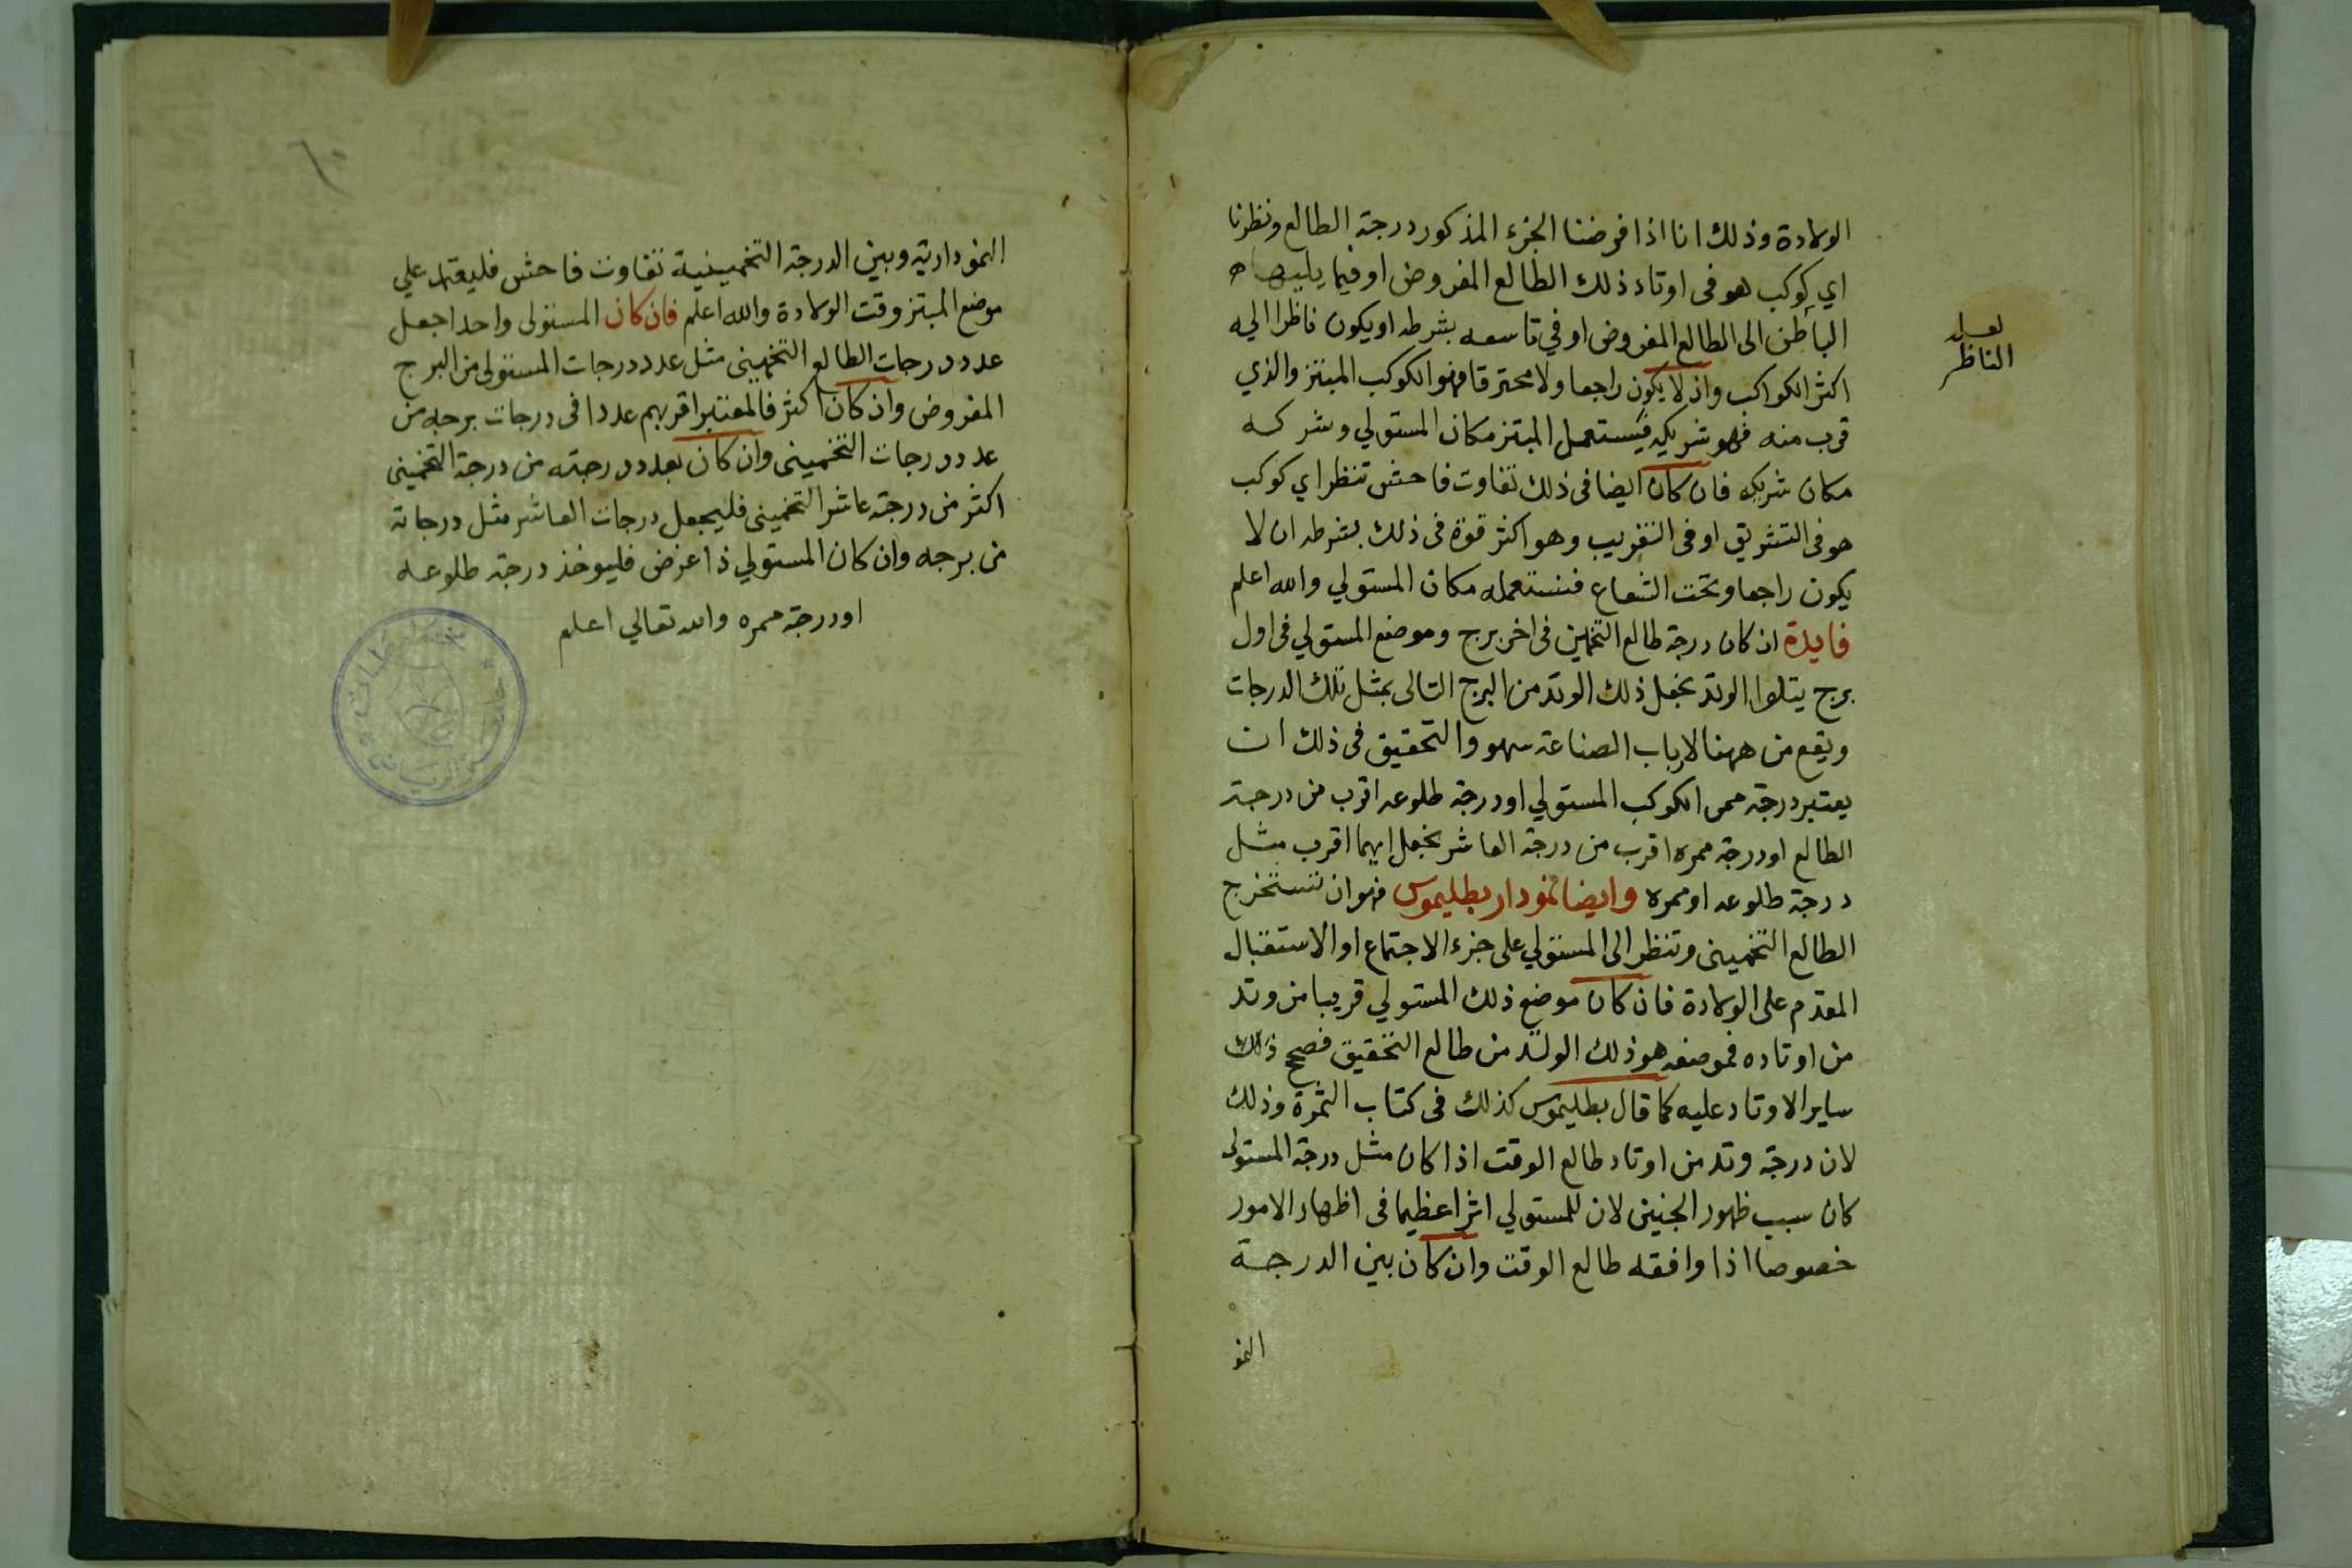 الولادة وذلك انا اذا فرضنا الجزء المذكور درجة الطالع ونظرنا
اي كوكب هو فى اوتاد ذلك الطالع المفروض او فيما يليها
الباطن الى الطالع المفروض او في تاسعه بشرطه او يكون ناظرا اليه
لعله
الناظر
اكثر الكواكب واذ لا يكون راجعا ولا محترقا فهو الكوكب المبتز والذي
قرب منه فهو شريكه فيستعمل المبتز مكان المستولي وشركه
مكان شريكه فان كان ايضا فى ذلك تفاوت فاحش تنظر اي كوكب
هو فى التشريق او فى التغريب وهو اكثر قوة فى ذلك بشرطه ان لا
يكون راجعا وتحت الشعاع فنستعمله مكان المستولي والله اعلم
فايدة ان كان درجة طالع التخمين فى اخر برج وموضع المستولي فى اول
برج يتلوا الوتد نجعل ذلك الوتد من البرج التالى بمثل تلك الدرجات
ويقع من ههنا لارباب الصناعة سهو والتحقيق فى ذلك ان
يعتبر درجة ممر الكوكب المستولي او درجة طلوعه اقرب من درجة
الطالع او درجة ممره اقرب من درجة العاشر نجعل ايهما اقرب مثل
درجة طلوعه او ممره وايضا نمودار بطليموس فهو ان تستخرج
الطالع التخمينى وتنظر الى المستولي على جزء الاجتماع او الاستقبال
المقدم على الولادة فان كان موضع ذلك المستولي قريبا من وتد
من اوتاده فموضعه هو ذلك الوتد من طالع التحقيق فصحح ذلك
ساير الاوتاد عليه كما قال بطليموس كذلك فى كتاب الثمرة وذلك
لان درجة وتد من اوتاد طالع الوقت اذا كان مثل درجة المستولى
كان سبب ظهور الجنين لان للمستولي اثرا عظيما فى اظهار الامور
خصوصا اذا وافقه طالع الوقت وان كان بين الدرجة
النمو
١٠
النمودارية وبين الدرجة التخمينية تفاوت فاحش فليعتمد علي
موضع المبتز وقت الولادة والله اعلم فان كان المستولى واحدا جعل
عدد درجات الطالع التخمينى مثل عدد درجات المستولى من البرج
المفروض وان كان اكثر فالمعتبر اقربهم عددا فى درجات برجه من
عدد درجات التخمينى وان كان بعدد درجته من درجة التخمينى
اكثر من درجة عاشر التخمينى فليجعل درجات العاشر مثل درجاته
من برجه وان كان المستولي ذا عرض فليوخذ درجة طلوعه
او درجة ممره والله تعالي اعلم